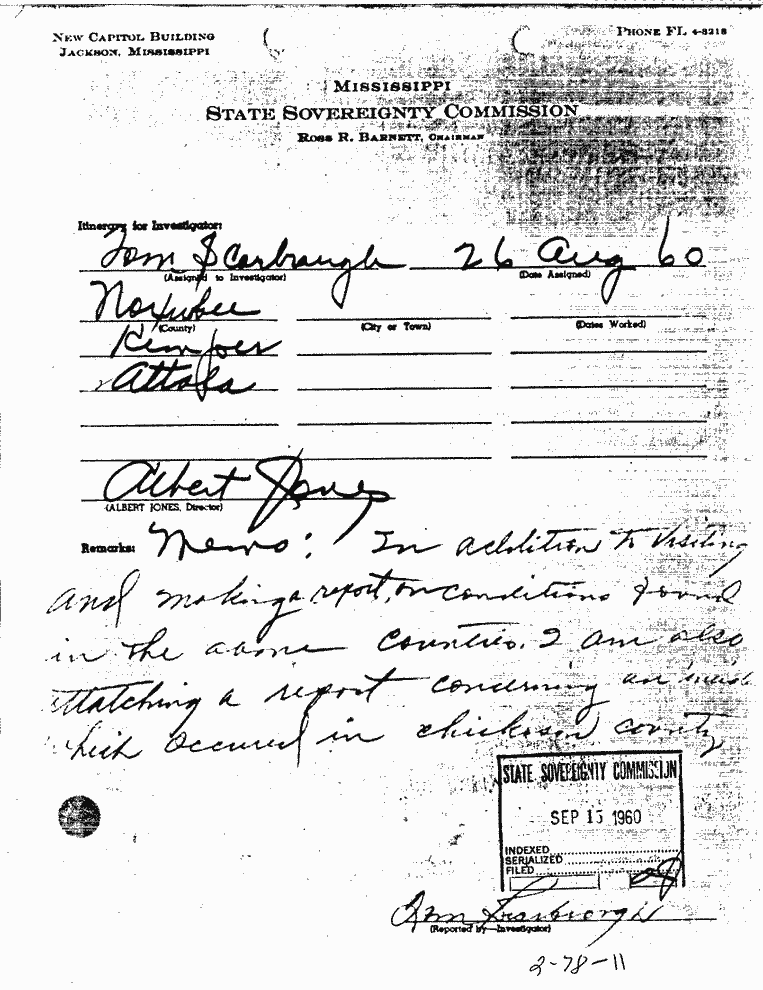 NEW CAPITOL BUILDING
JACKSON, MISSISSIPPI
PHONE FL 4-8218
MISSISSIPPI
STATE SOVEREIGNTY COMMISSION
ROSS R. BARNETT, CHAIRMAN
Itinerary for Investigator:
Tom Scarbrough 26 Aug 60
(Assigned to Investigator) (Date Assigned)
Noxubee
(County) (City or Town) (Dates Worked)
Kemper
Attala
Albert Jones
(ALBERT JONES, Director)
Remarks: Memo: In addition to visiting
and making a report, on conditions found
in the above counties. I am also
attatching a report concerning an
which occured in chickasaw county
STATE SOVEREIGNTY COMMISSION
SEP 15 1960
INDEXED
SERIALIZED
FILED
Tom Scarbrough
(Reported by—Investigator)
2-78-11